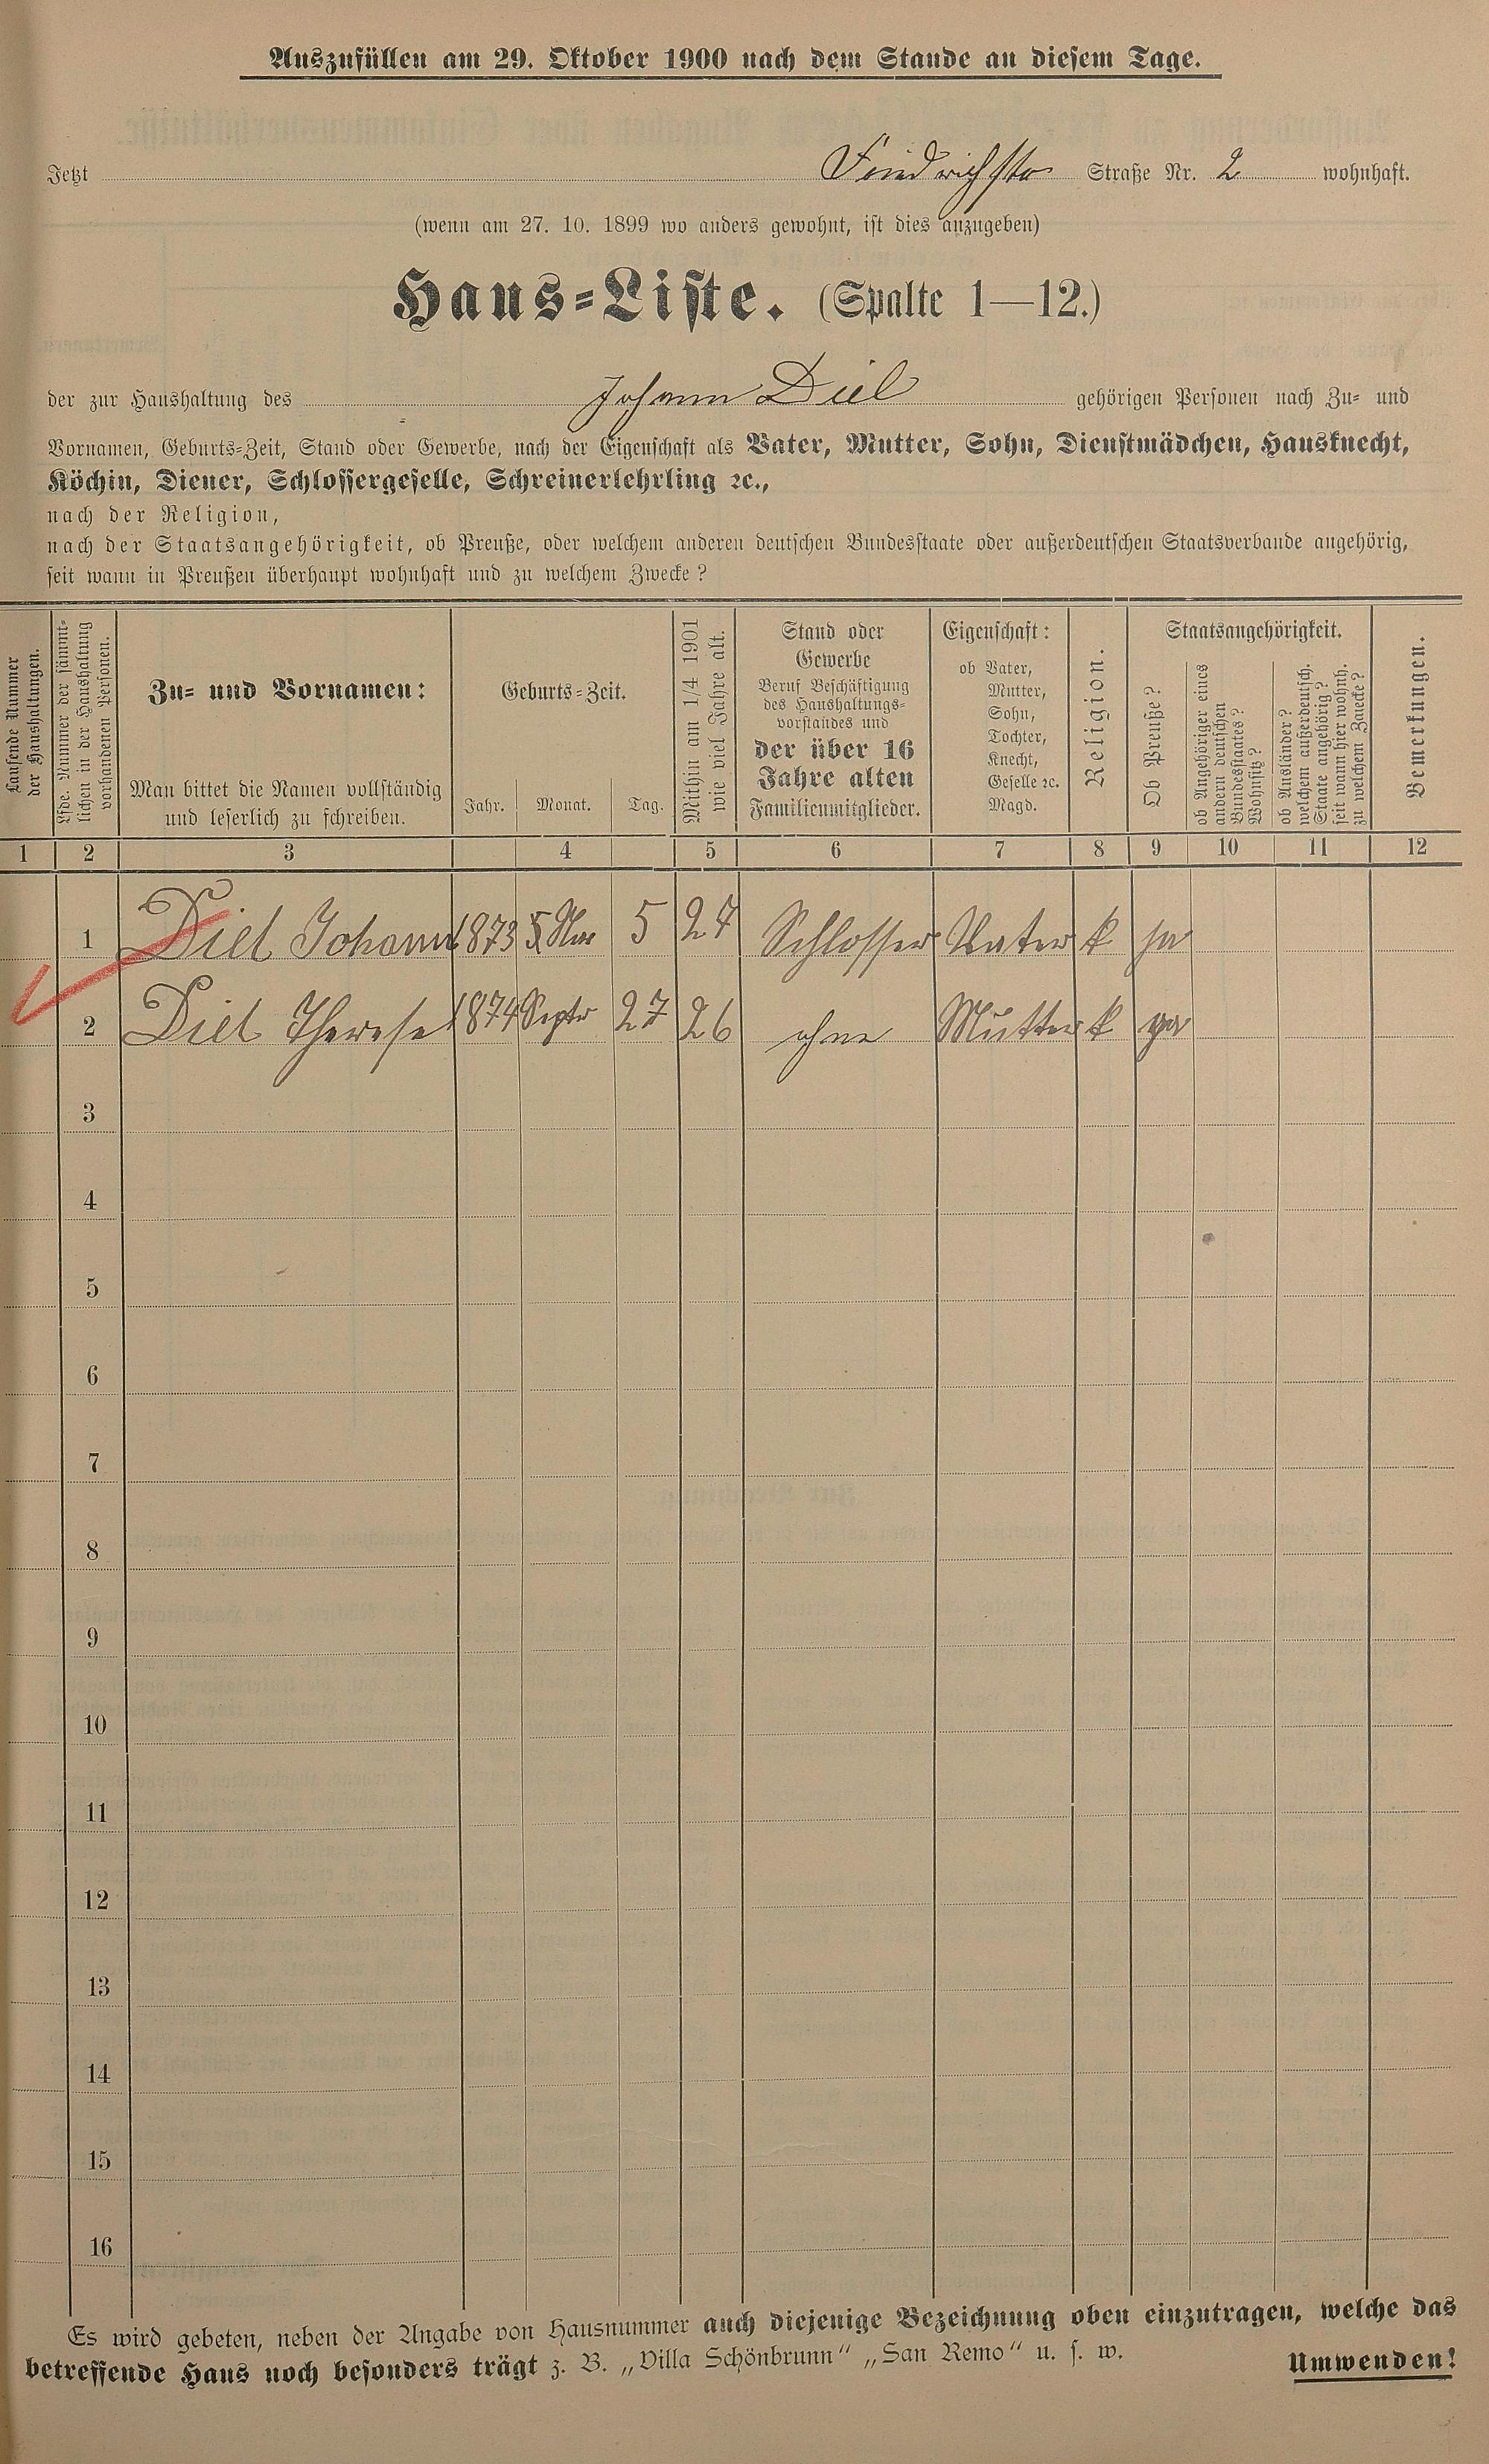 Auszufüllen am 29. Oktober 1900 nach dem Stande an diesem Tage.
Jetzt Friedrichstr Straße Nr. 2 wohnhaft.
(wenn am 27. 10. 1899 wo anders gewohnt, ist dies anzugeben)
Haus-Liste. (Spalte 1—12.)
der zur Haushaltung des Johann Diel gehörigen Personen nach Zu- und
Vornamen, Geburts-Zeit, Stand oder Gewerbe, nach der Eigenschaft als Vater, Mutter, Sohn, Dienstmädchen, Hausknecht,
Köchin, Diener, Schlossergeselle, Schreinerlehrling ꝛc.,
nach der Religion,
nach der Staatsangehörigkeit, ob Preuße, oder welchem anderen deutschen Bundesstaate oder außerdeutschen Staatsverbande angehörig,
seit wann in Preußen überhaupt wohnhaft und zu welchem Zwecke?
Laufende Nummer
der Haushaltungen.
Lfde. Nummer der sämmt-
lichen in der Haushaltung
vorhandenen Personen.
Zu- und Vornamen:
Man bittet die Namen vollständig
und leserlich zu schreiben.
Geburts-Zeit.
Jahr. Monat. Tag.
Mithin am 1/4 1901
wie viel Jahre alt.
Stand oder
Gewerbe
Beruf Beschäftigung
des Haushaltungs-
vorstandes und
der über 16
Jahre alten
Familienmitglieder.
Eigenschaft:
ob Vater,
Mutter,
Sohn,
Tochter,
Knecht,
Geselle ꝛc.
Magd.
Religion.
Staatsangehörigkeit.
Ob Preuße?
ob Angehöriger eines
andern deutschen
Bundesstaates?
Wohnsitz?
ob Ausländer?
welchem außerdeutsch.
Staate angehörig?
seit wann hier wohnh.
zu welchem Zwecke?
Bemerkungen.
1 2 3 4 5 6 7 8 9 10 11 12
1 Diel Johann 1873 5 27 Schlosser Vater k ja
2 Diel Therese 1874 Septr 27 26 ohne Mutter k ja
3
4
5
6
7
8
9
10
11
12
13
14
15
16
Es wird gebeten, neben der Angabe von Hausnummer auch diejenige Bezeichnung oben einzutragen, welche das
betreffende Haus noch besonders trägt z. B. „Villa Schönbrunn“ „San Remo“ u. s. w.
Umwenden!